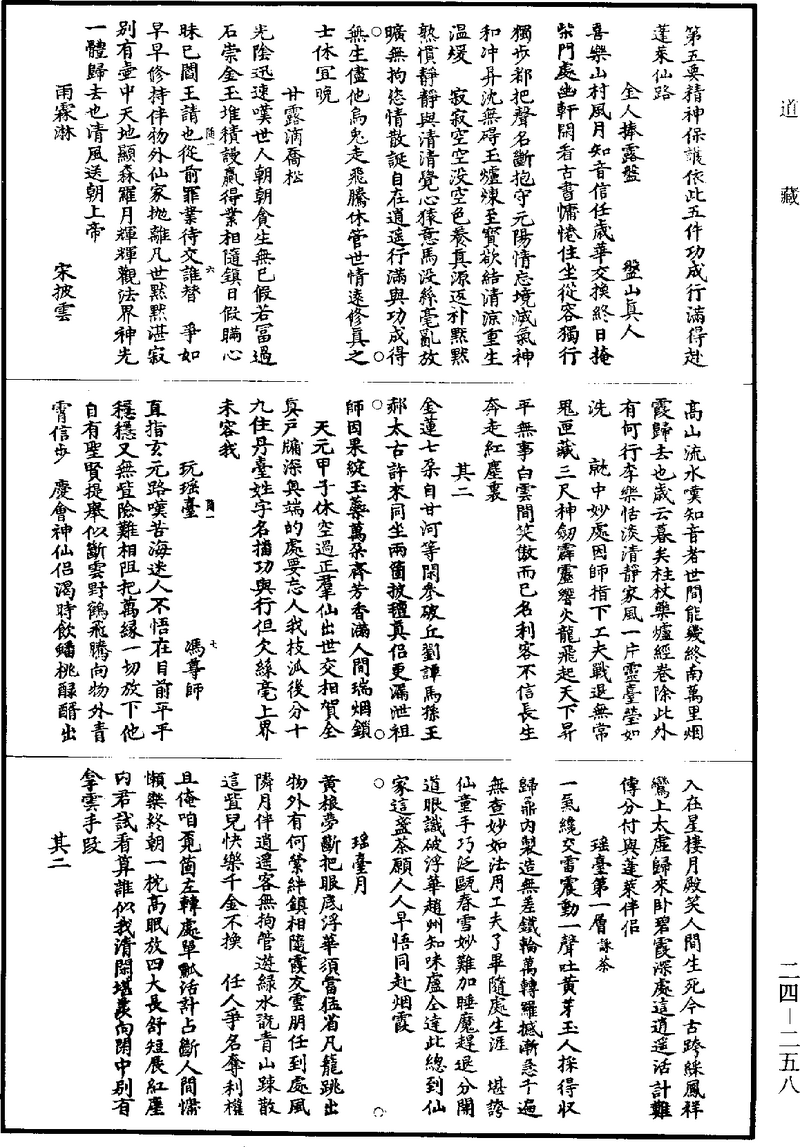 道藏
第五要精神保護依此五件功成行滿得赴
蓬萊仙路
仝人捧露盤 盤山真人
喜樂山村風月知音信任歲華交換終日掩
柴門處幽軒閑看古書慵惓住坐從容獨行
獨步都把聲名斷抱守元陽情忘境滅氣神
和冲昇沈無碍玉爐煉至寶欲結清涼重生
温煖 寂寂空空没空色養真源返补黙黙
熟慣靜靜與清清覺心猿意馬没絲毫亂放
曠無拘恣情散誕自在逍遥行滿與功成得
無生儘他烏兔走飛騰休管世情遠修真之
士休宜晚
甘露滴喬松
光陰迅速嘆世人朝朝貪生無已假若富過
石崇金玉堆積謾贏得業相隨鎮日假瞞心
昧已閻王請也從前罪業待交誰替 爭如
早早修持伴物外仙家抛離凡世黙黙湛寂
别有壷中天地顯森羅月輝輝觀法界神光
一體歸去也清風送朝上帝
雨霖淋 宋披雲
高山流水嘆知音者世間能幾終南萬里烟
霞歸去也歲云暮矣柱杖藥爐經巻除此外
有何行李樂恬淡清靜家風一片靈臺瑩如
洗 就中妙處因師指下工夫戰退無常
鬼匣藏三尺神劒霹靂響火龍飛起天下昇
平無事白雲間笑傲而已名利客不信長生
奔走紅塵裏
其二
金蓮七朶自甘河等閑參破丘劉譚馬孫王
郝太古許來同坐兩箇披氊真侣更漏泄祖
師因果綻玉蘂萬朶齊芳香滿人間瑞烟鎖
天元甲子休空過正羣仙出世交相賀全
真戸牖深奥端的處要忘人我枝派後分十
九住丹臺姓字名播功與行但欠絲毫上界
未容我
玩瑶臺 馮尊師
直指玄元路嘆苦海迷人不悟在目前平平
穏穏又無䇄險難相阻把萬緣一切放下他
自有聖賢提舉似斷雲野鶴飛騰向物外青
霄信步 慶會神仙侣渴時飲蟠桃醁醑出
入在星樓月殿笑人間生死今古跨綵鳳祥
鸞上太虚歸來卧碧霞深處這逍遥活計難
傳分付與蓬萊伴侣
瑶臺第一層 詠茶
一氣纔交雷震動一聲吐黄芽玉人採得収
歸鼎内製造無差鐵輪萬轉羅撼漸急千遍
無查妙如法用工夫了畢隨處生涯 堪誇
仙童手巧泛甌春雪妙難加睡魔趕退分開
道眼識破浮華趙州知味盧仝達此總到仙
家這盞茶願人人早悟同赴烟霞
瑶臺月
黄粮夢斷把眼底浮華須當伍省凡籠跳出
物外有何縈絆鎮相隨霞友雲朋任到處風
隣月伴逍遥客無拘管遊緑水翫青山踈散
這䇄兒快樂千金不換 任人爭名奪利權
且俺咱覔箇左轉處單瓢活計占斷人間慵
懶樂終朝一枕高眠放四大長舒短展紅塵
内君試看算誰似我清閑堪羨向閑中别有
拿雲手段
其二
二四—二五八